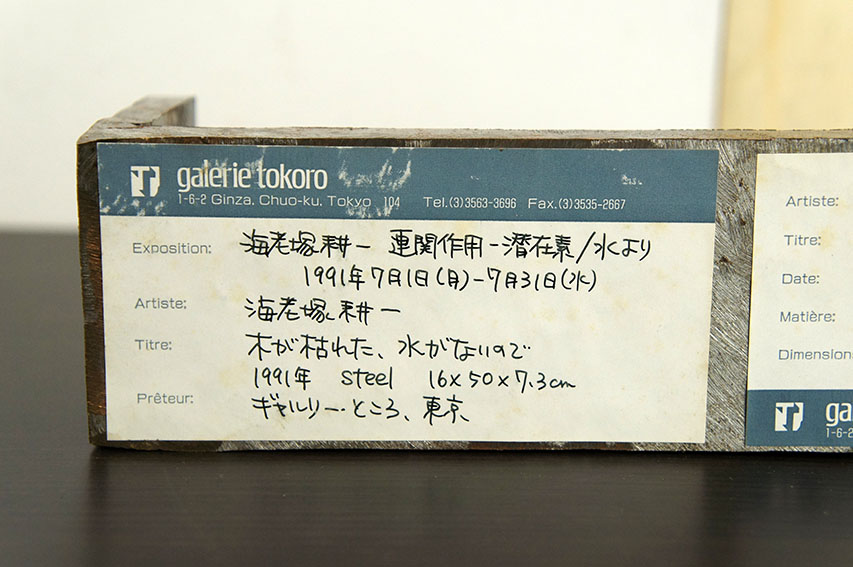 galerie tokoro
1-6-2 Ginza. Chuo-ku. Tokyo 104 Tel.(3)3563-3696 Fax.(3)3535-2667
Exposition: 海老塚耕一 連関作用-潜在素/水より
1991年7月1日(月)-7月31日(水)
Artiste: 海老塚耕一
Titre: 木が枯れた、水がないので
1991年 steel 16×50×7.3cm
Prêteur: ギャルリー・ところ、東京
Artiste:
Titre:
Date:
Matière:
Dimension
ga
1-6-2